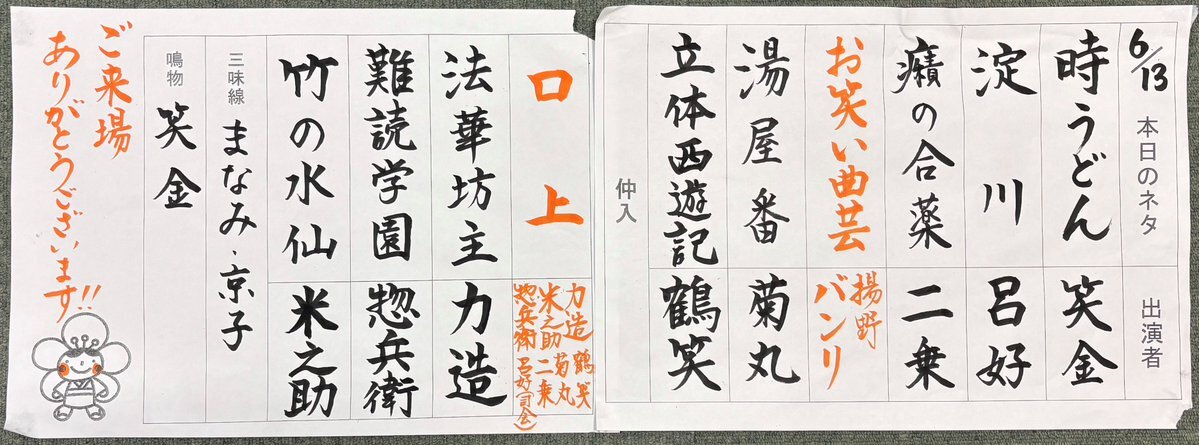 6/13
本日のネタ 出演者
時うどん 笑金
淀川 呂好
癪の合薬 二乗
お笑い曲芸 揚野バンリ
湯屋番 菊丸
立体西遊記 鶴笑
仲入
口上
力造 鶴笑
米之助 菊丸
惣兵衛 二乗
呂好(司会)
法華坊主 力造
難読学園 惣兵衛
竹の水仙 米之助
三味線 まなみ・京子
鳴物 笑金
ご来場
ありがとうございます!!